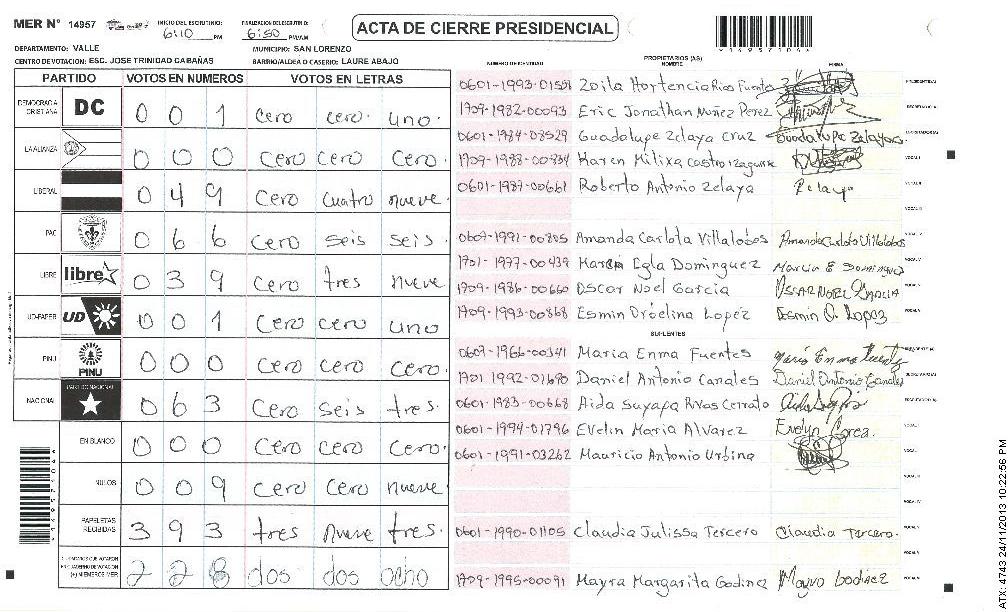 MER N° 14957 INICIO DEL ESCRUTINIO: 6:10 PM FINALIZACION DEL ESCRUTINIO: 6:50 PM/AM ACTA DE CIERRE PRESIDENCIAL
DEPARTAMENTO: VALLE MUNICIPIO: SAN LORENZO
CENTRO DE VOTACION: ESC. JOSE TRINIDAD CABAÑAS BARRIO/ALDEA O CASERIO: LAURE ABAJO
PARTIDO VOTOS EN NUMEROS VOTOS EN LETRAS
DEMOCRACIA CRISTIANA DC 0 0 1 cero cero uno.
LA ALIANZA 0 0 0 Cero Cero Cero.
LIBERAL 0 4 9 Cero Cuatro nueve.
PAC 0 6 6 Cero seis seis.
LIBRE libre 0 3 9 Cero tres nueve
UD-FAPER UD 0 0 1 Cero cero uno
PINU PINU 0 0 0 Cero Cero Cero.
NACIONAL PARTIDO NACIONAL 0 6 3 Cero Seis tres.
EN BLANCO 0 0 0 Cero Cero Cero.
NULOS 0 0 9 Cero Cero nueve
PAPELETAS RECIBIDAS 3 9 3 tres nueve tres.
2 2 8 dos dos ocho
NUMERO DE IDENTIDAD PROPIETARIOS (AS) NOMBRE FIRMA
0601-1993-01551 Zoila Hortencia Rios Fuente
1709-1982-00093 Eric Jonathan Nuñez Perez
0601-1984-08529 Guadalupe Zelaya Cruz Guadalupe Zelaya
1709-1988-00834 Karen Milixa Castro Izaguirre
0601-1987-00661 Roberto Antonio Zelaya Zelaya
0609-1991-00805 Amanda Carlota Villalobos Amanda Carlota Villalobos
1701-1977-00439 Marcia Egla Dominguez Marcia E Dominguez
1709-1986-00660 Oscar Noel Garcia OSCAR NOEL GARCIA
1709-1993-00868 Esmin Orbelina Lopez Esmin O. Lopez
SUPLENTES
0609-1966-00341 Maria Enma Fuentes Maria Enma Fuentes
1701 1992-01690 Daniel Antonio Canales Daniel Antonio Canales
0601-1983-00668 Aida Suyapa Rivas Cerrato
0601-1994-01796 Evelin Maria Alvarez
0601-1991-03262 Mauricio Antonio Urbina
0601-1990-01105 Claudia Julissa Tercero Claudia Tercero.
1709-1995-00091 Mayra Margarita Godinez Mayra Godinez
ATX: 4743 24/11/2013 10:22:56 PM